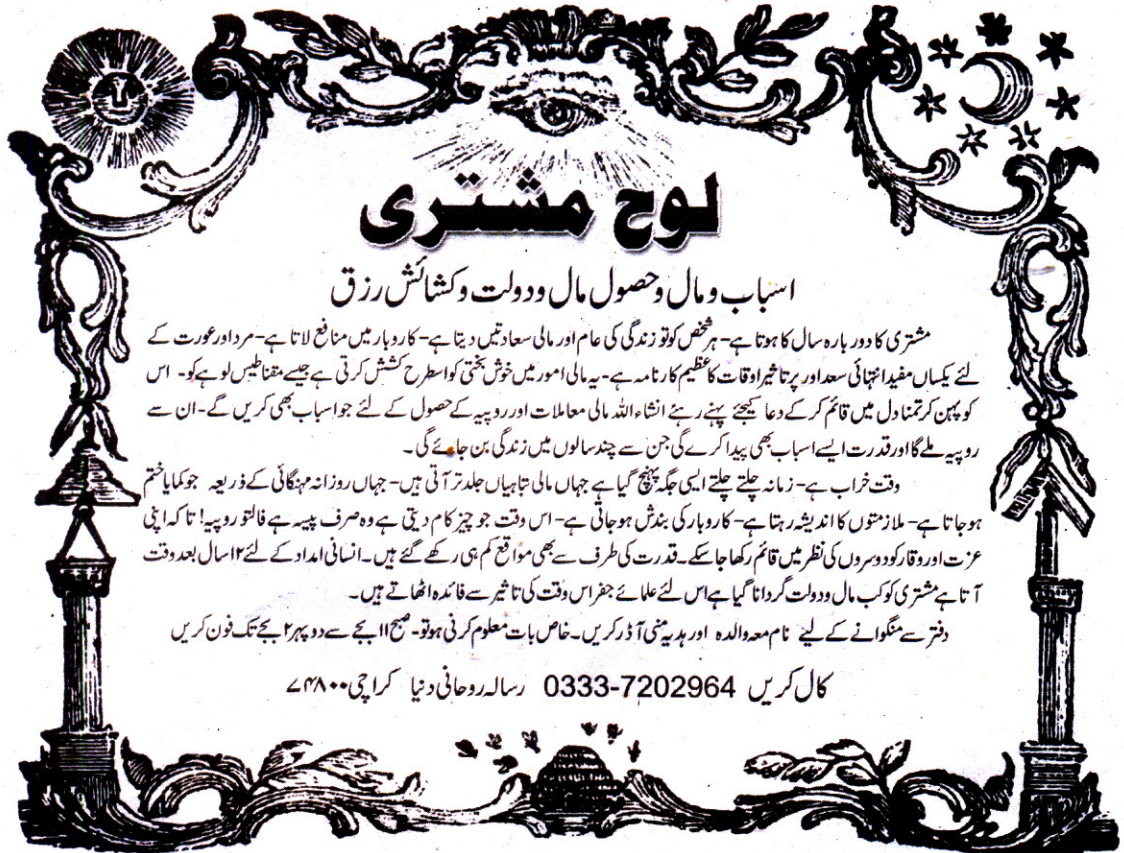 لوح مشتری
اسباب و مال و حصول مال و دولت و کشائش رزق
مشتری کا دور بارہ سال کا ہوتا ہے- ہر شخص کو تو زندگی کی عام اور مالی سعادتیں دیتا ہے- کاروبار میں منافع لاتا ہے- مرد اور عورت کے
لئے یکساں مفید انتہائی سعد اور پر تاثیر اوقات کا عظیم کارنامہ ہے- یہ مالی امور میں خوش بختی کو اسطرح کشش کرتی ہے جیسے مقناطیس لوہے کو- اس
کو پہن کر تمنا دل میں قائم کر کے دعا کیجئے پہنے رہئے انشاء اللہ مالی معاملات اور روپیہ کے حصول کے لئے جو اسباب بھی کریں گے- ان سے
روپیہ ملے گا اور قدرت ایسے اسباب بھی پیدا کرے گی جن سے چند سالوں میں زندگی بن جائے گی-
وقت خراب ہے- زمانہ چلتے چلتے ایسی جگہ پہنچ گیا ہے جہاں مالی تباہیاں جلد تر آتی ہیں- جہاں روزانہ مہنگائی کے ذریعہ جو کمایا ختم
ہو جاتا ہے- ملازمتوں کا اندیشہ رہتا ہے- کاروبار کی بندش ہو جاتی ہے- اس وقت جو چیز کام دیتی ہے وہ صرف پیسہ ہے فالتو روپیہ! تا کہ اپنی
عزت اور وقار کو دوسروں کی نظر میں قائم رکھا جا سکے۔ قدرت کی طرف سے بھی مواقع کم ہی رکھے گئے ہیں۔ انسانی امداد کے لئے ۱۲ سال بعد وقت
آتا ہے مشتری کو کب مال و دولت گردانا گیا ہے اس لئے علمائے جفر اس وقت کی تاثیر سے فائدہ اٹھاتے ہیں۔
دفتر سے منگوانے کے لیے نام معہ والدہ اور ہدیہ منی آڈر کریں۔ خاص بات معلوم کرنی ہو تو- صبح ۱۱ بجے سے دوپہر ۲ بجے تک فون کریں
کال کریں 0333-7202964 رسالہ روحانی دنیا کراچی ۷۴۸۰۰